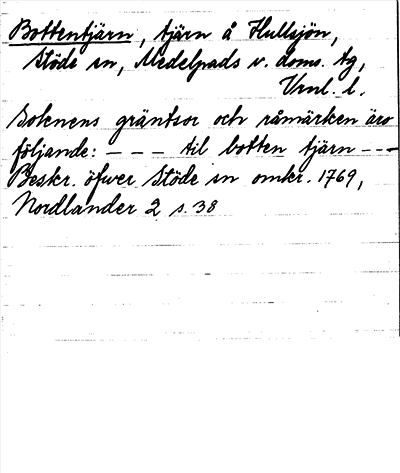 Bottentjärn, tjärn å Hullsjön,
Stöde sn, Medelpads v. doms. tg,
Vrnl. l.
Soknens gräntsor och råmärken äro
följande: - - - til botten tjärn - - -
Beskr. öfwer Stöde sn omkr. 1769,
Nordlander 2 s. 38